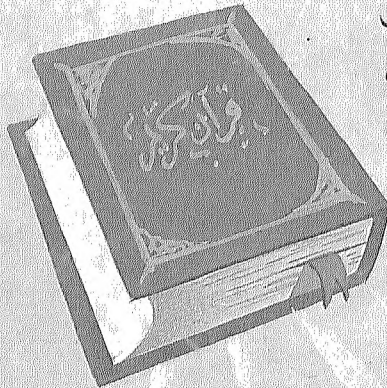 قرآن كريم